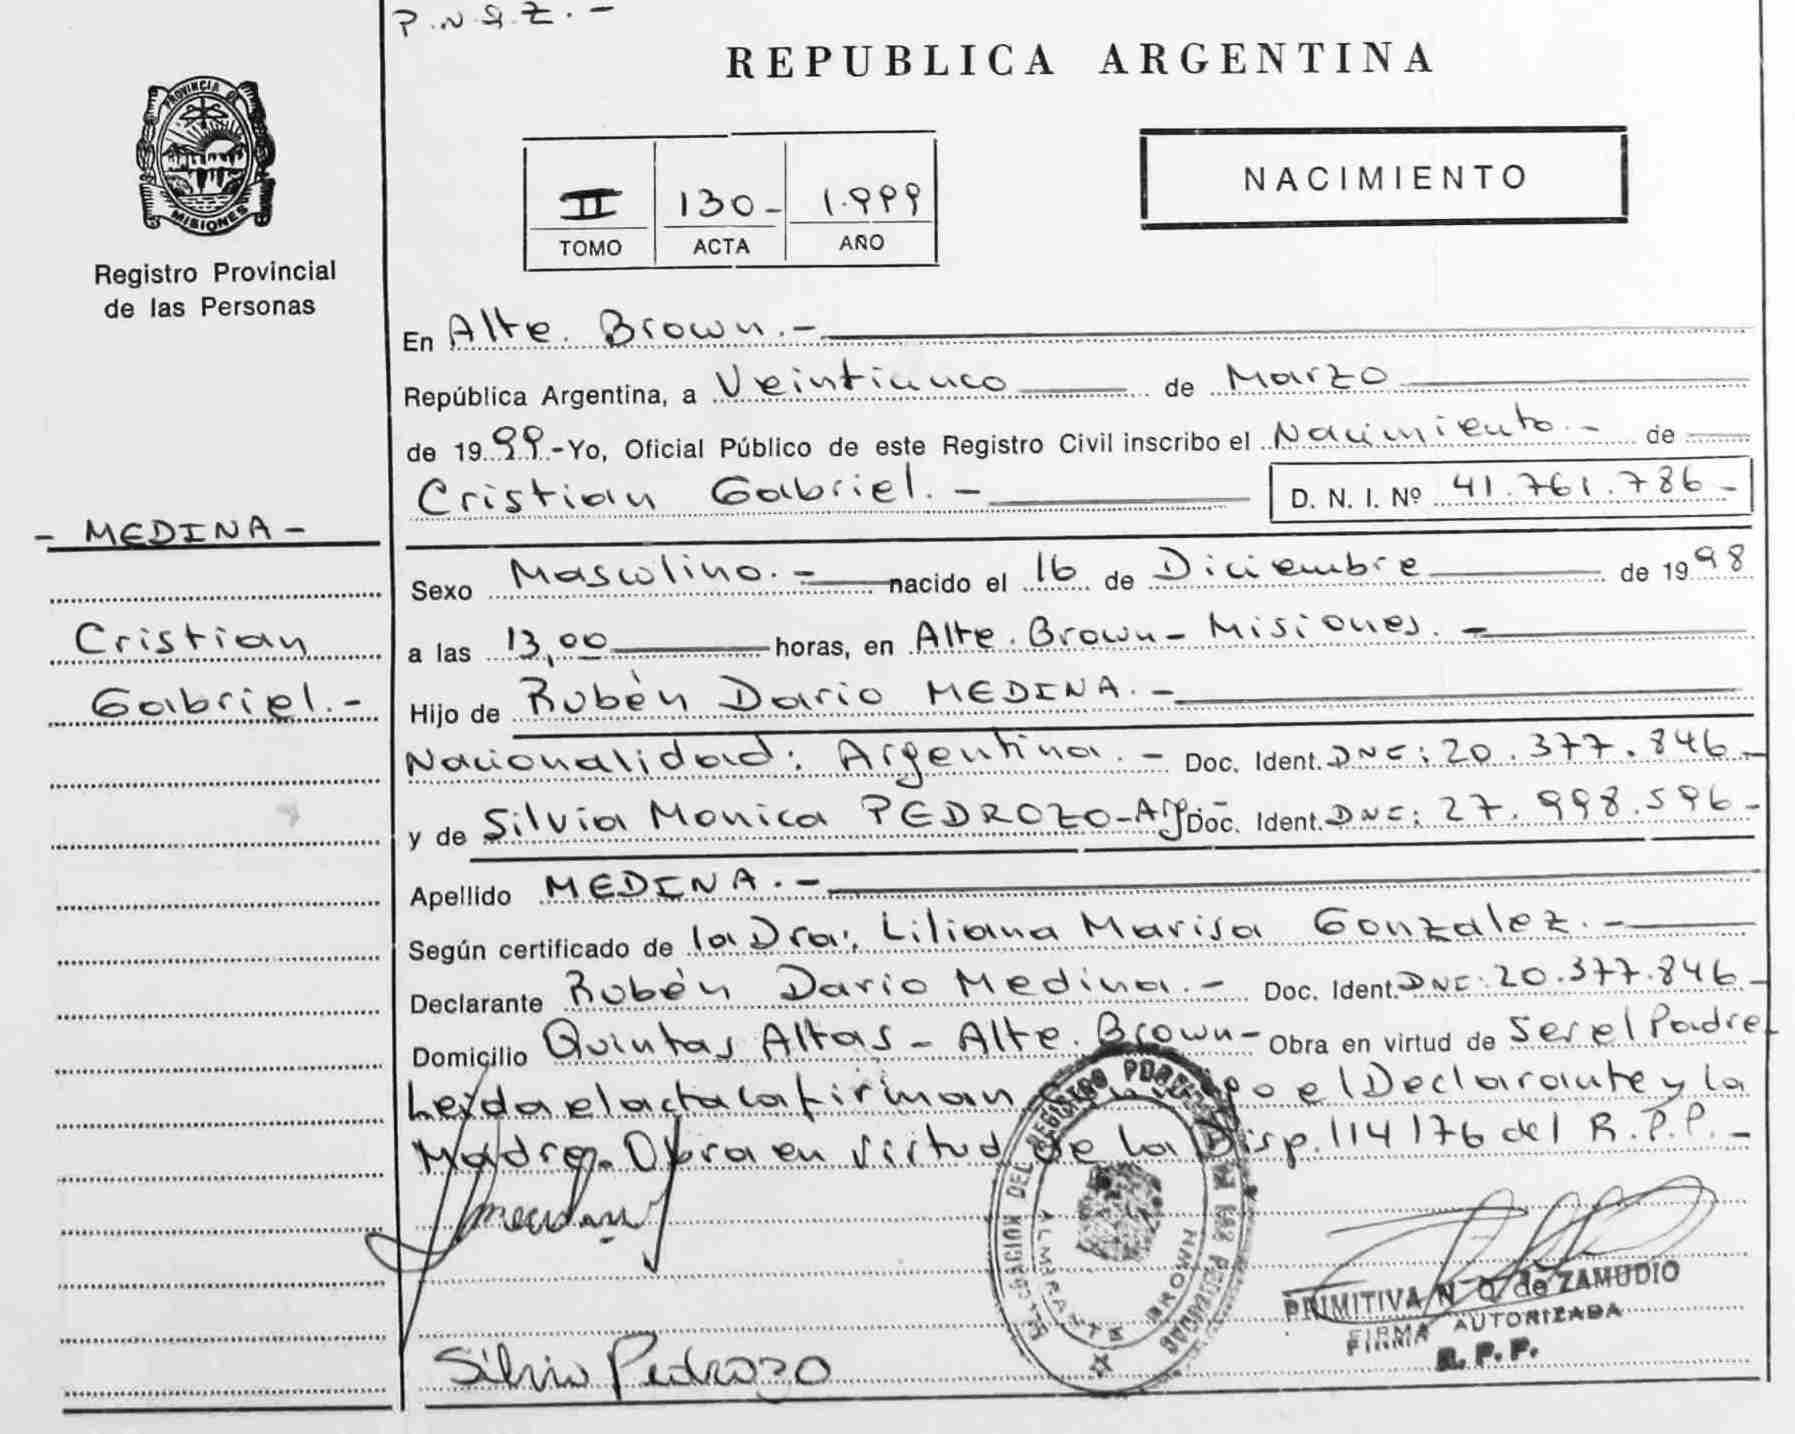 P.N.Q.Z.-
REPUBLICA ARGENTINA
PROVINCIA DE
MISIONES
Registro Provincial
de las Personas
II 130- 1.999
TOMO ACTA AÑO
NACIMIENTO
En Alte. Brown.-
República Argentina, a Veinticinco de Marzo
de 1999.-Yo, Oficial Público de este Registro Civil inscribo el Nacimiento.- de
Cristian Gabriel.- D. N. I. Nº 41.761.786-
- MEDINA -
Cristian
Gabriel.-
Sexo Masculino.- nacido el 16 de Diciembre de 1998
a las 13,00 horas, en Alte. Brown- Misiones.-
Hijo de Rubén Dario MEDINA.-
Nacionalidad: Argentina.- Doc. Ident. DNI: 20.377.846-
y de Silvia Monica PEDROZO-Arg.- Doc. Ident. DNI: 27.998.596-
Apellido MEDINA.-
Según certificado de la Dra: Liliana Marisa Gonzalez.-
Declarante Rubén Dario Medina.- Doc. Ident. DNI: 20.377.846-
Domicilio Quintas Altas- Alte. Brown- Obra en virtud de Ser el Padre.
Leida el acta la firman Conmigo el Declarante y la
Madre.- Obra en virtud de la Disp. 114/76 del R.P.P.-
DEL REGISTRO
DE LAS PERSONAS
ALMIRANTE BROWN
PRIMITIVA N. Q. de ZAMUDIO
FIRMA AUTORIZADA
R. P. P.
Silvia Pedrozo